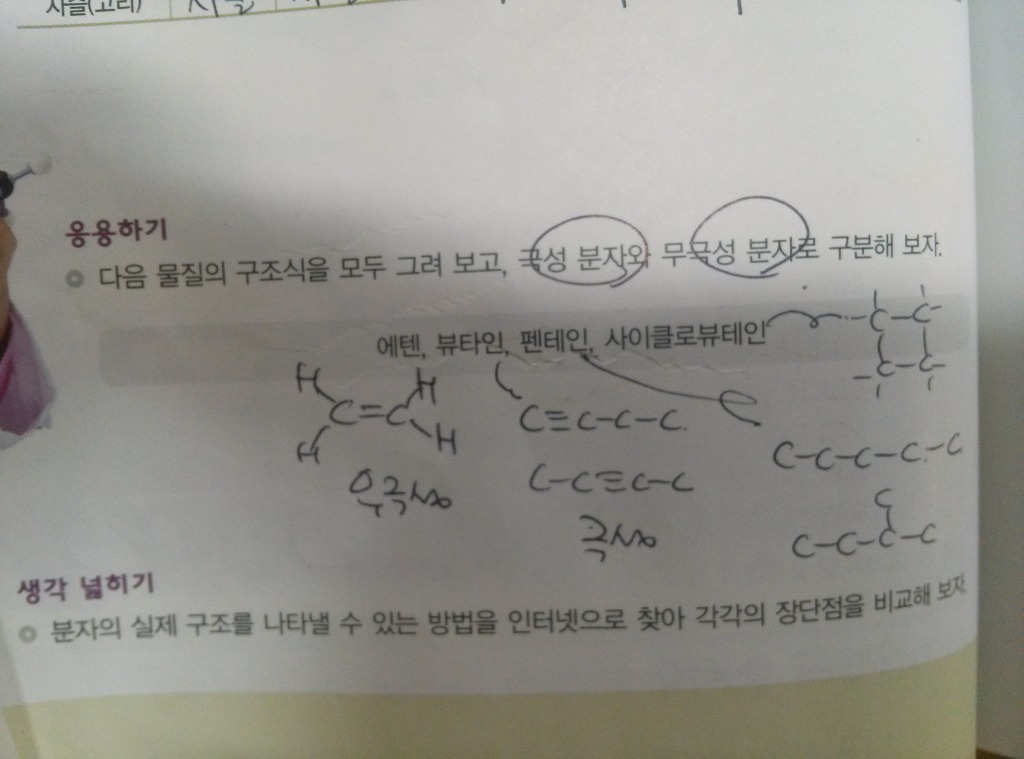 사슬(고리)
응용하기
다음 물질의 구조식을 모두 그려 보고, 극성 분자와 무극성 분자로 구분해 보자.
에텐, 뷰타인, 펜테인, 사이클로뷰테인
-C-C-
-C-C-
H H
C=C
H H
무극성
C≡C-C-C
C-C≡C-C
극성
C-C-C-C-C
C
C-C-C-C
생각 넓히기
분자의 실제 구조를 나타낼 수 있는 방법을 인터넷으로 찾아 각각의 장단점을 비교해 보자.